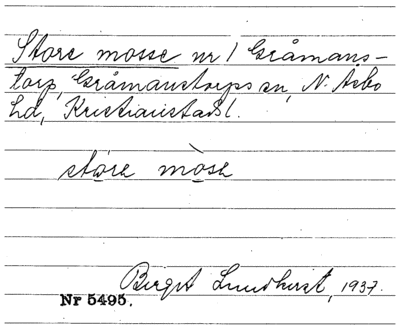 Store mosse nr 1 Gråmans-
torp, Gråmanstorps sn, N. Åsbo
hd, Kristianstads l.
störe mòse
Birgit Lundkvist, 1937.
Nr 5495.